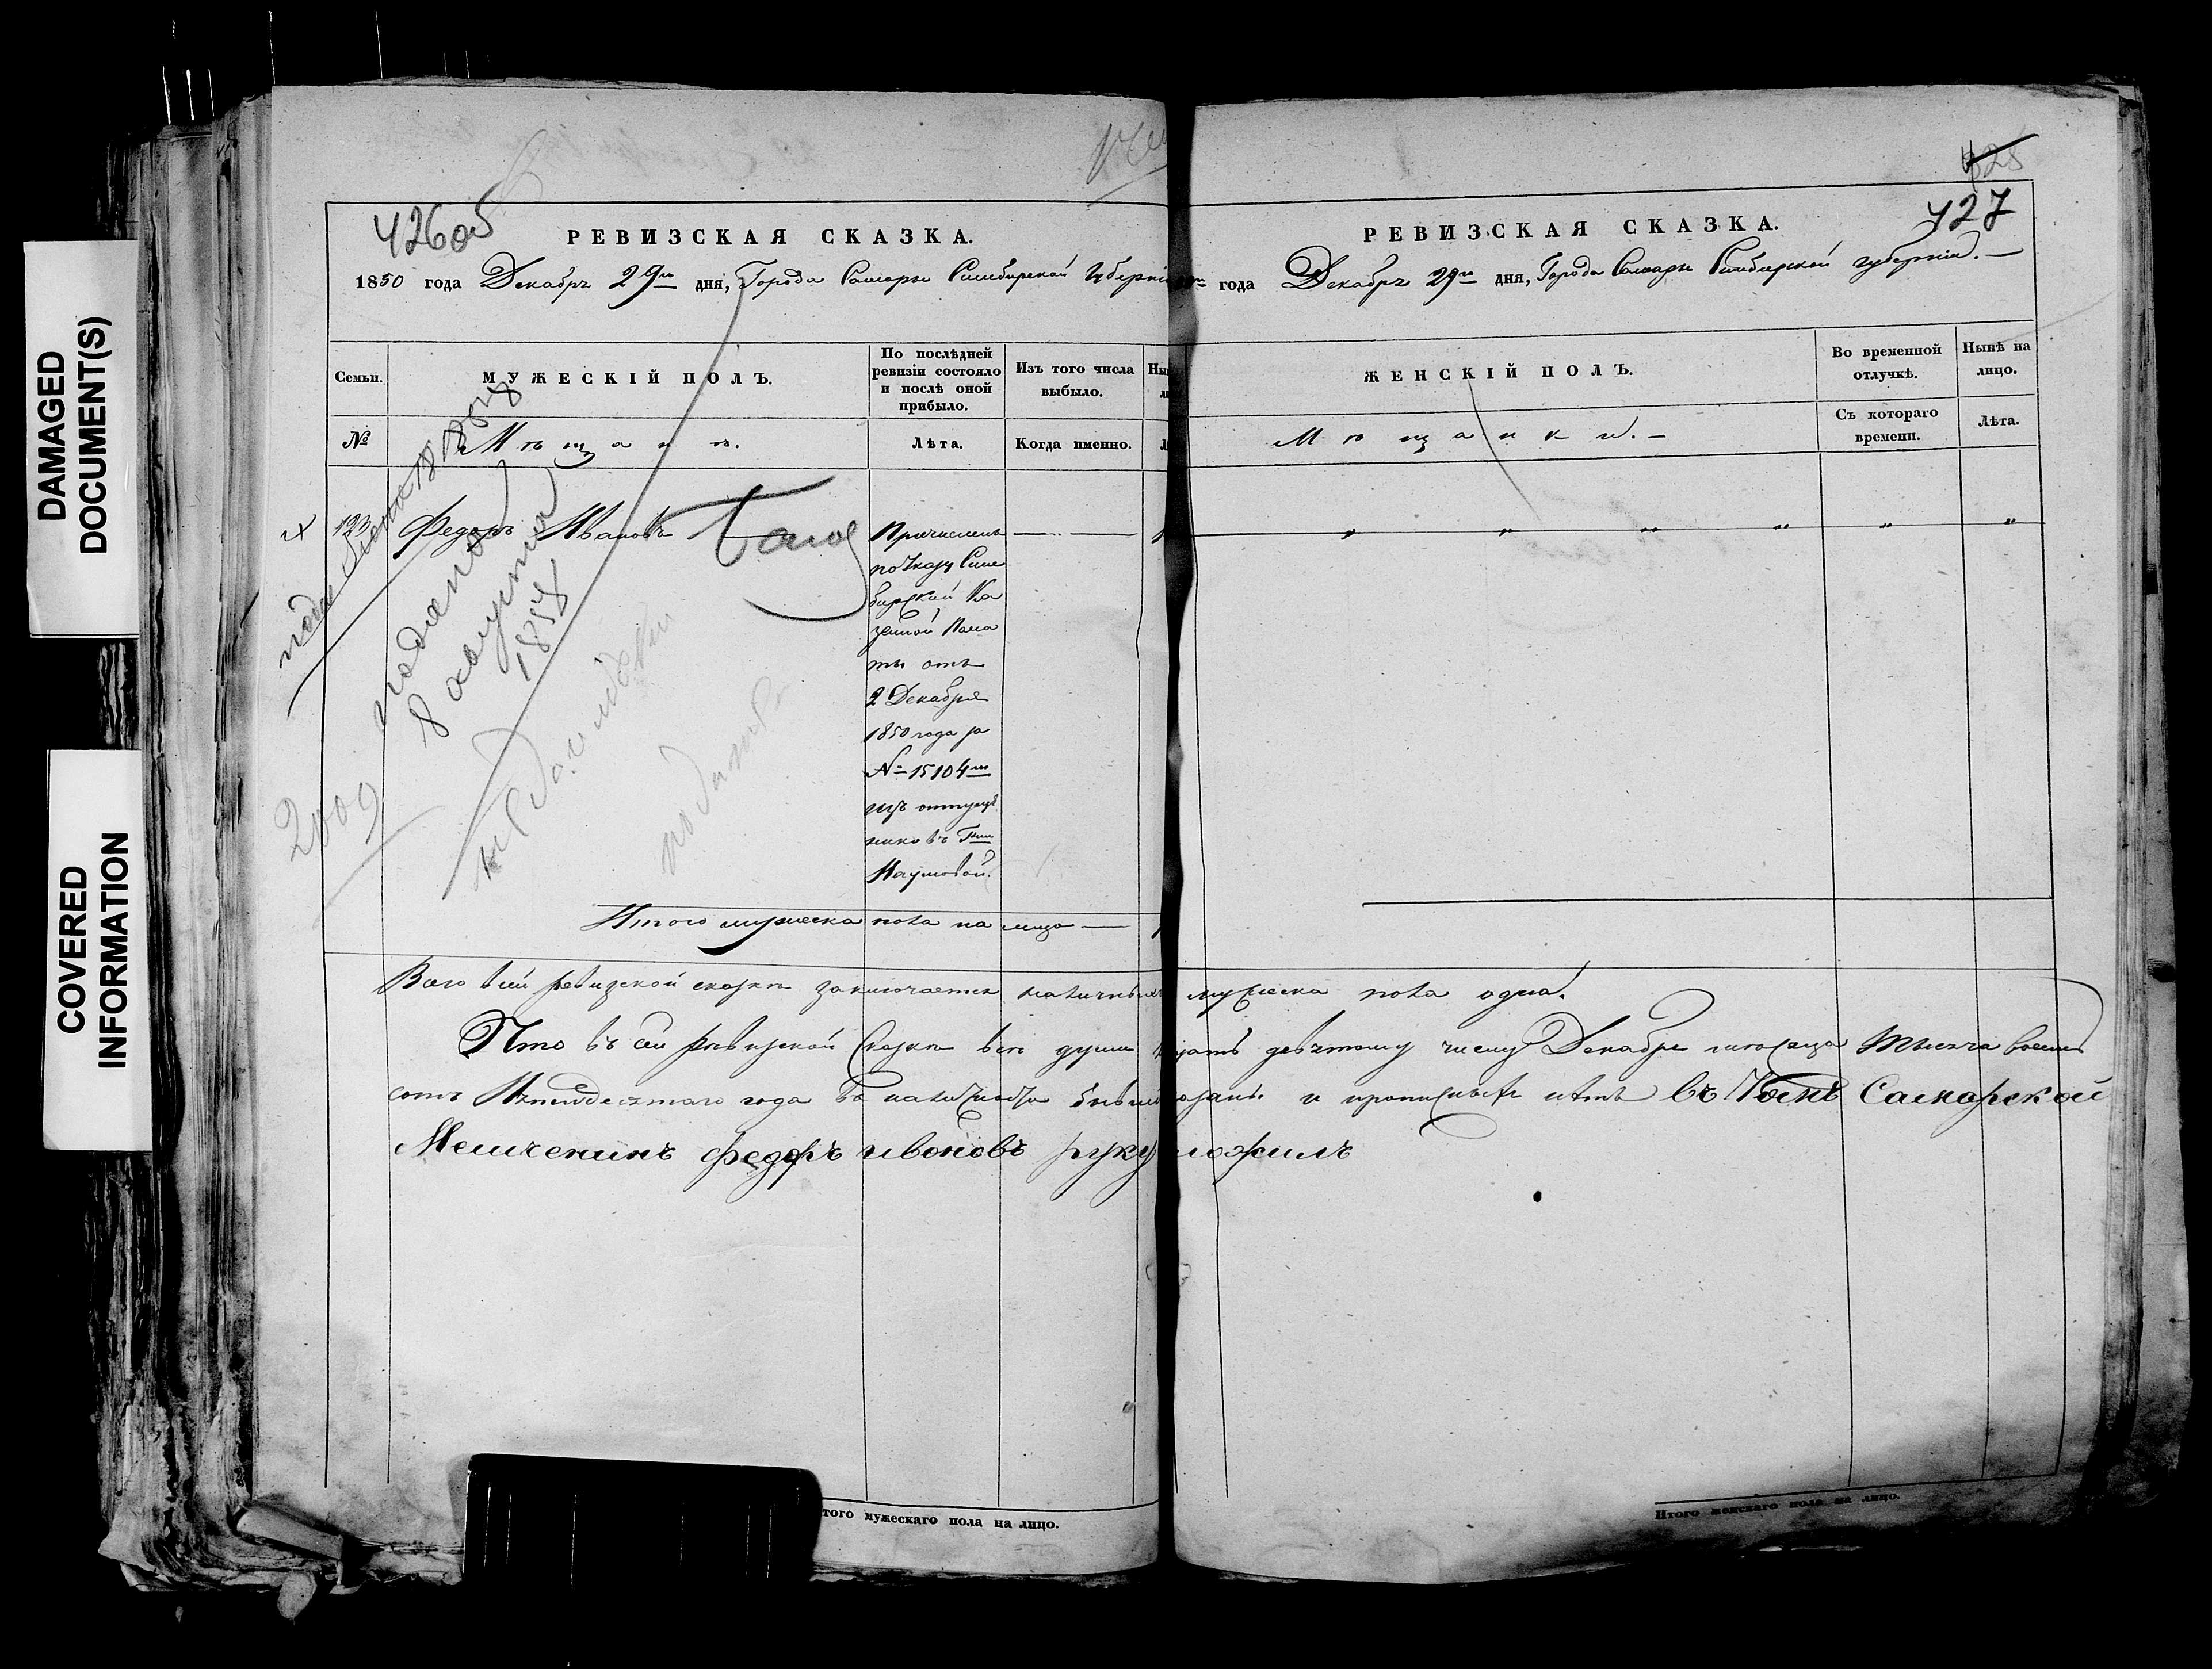 DAMAGED
DOCUMENT(S)
COVERED
INFORMATION
426об
РЕВИЗСКАЯ СКАЗКА.
1850 года Декабря 29го дня, Города Самары Симбирской Губерніи
Семьи. МУЖЕСКІЙ ПОЛЪ.
По послѣдней
ревизіи состояло
и послѣ оной
прибыло.
Изъ того числа
выбыло.
№ Мѣщане. Лѣта. Когда именно.
123 Федоръ Ивановъ
Причисленъ
по Указу Сим
бирской Ка
зенной Пала
ты отъ
2 Декабря
1850 года за
№ 15104м
изъ отпущен
никовъ Гжи
Наумовой.
подана
8 августа
1858
2009
Итого мужеска пола на лицо
427
РЕВИЗСКАЯ СКАЗКА.
года Декабря 29го дня, Города Самары Симбирской губерніи.
ЖЕНСКІЙ ПОЛЪ.
Во временной
отлучкѣ.
Нынѣ на
лицо.
Мѣщанки.
Съ котораго
времени.
Лѣта.
Всего въ сей ревизской сказкѣ заключается наличныхъ мужеска пола одна.
Что въ сей ревизской Сказкѣ всѣ души къ девятому числу Декабря мѣсяца Тысяча восемь
сотъ Пятидесятаго года въ наличности бывшія и прописныхъ нѣтъ въ томъ Самарской
Мешченинъ федоръ ивоновъ руку ложилъ
того мужескаго пола на лицо.
Итого женскаго пола на лицо.